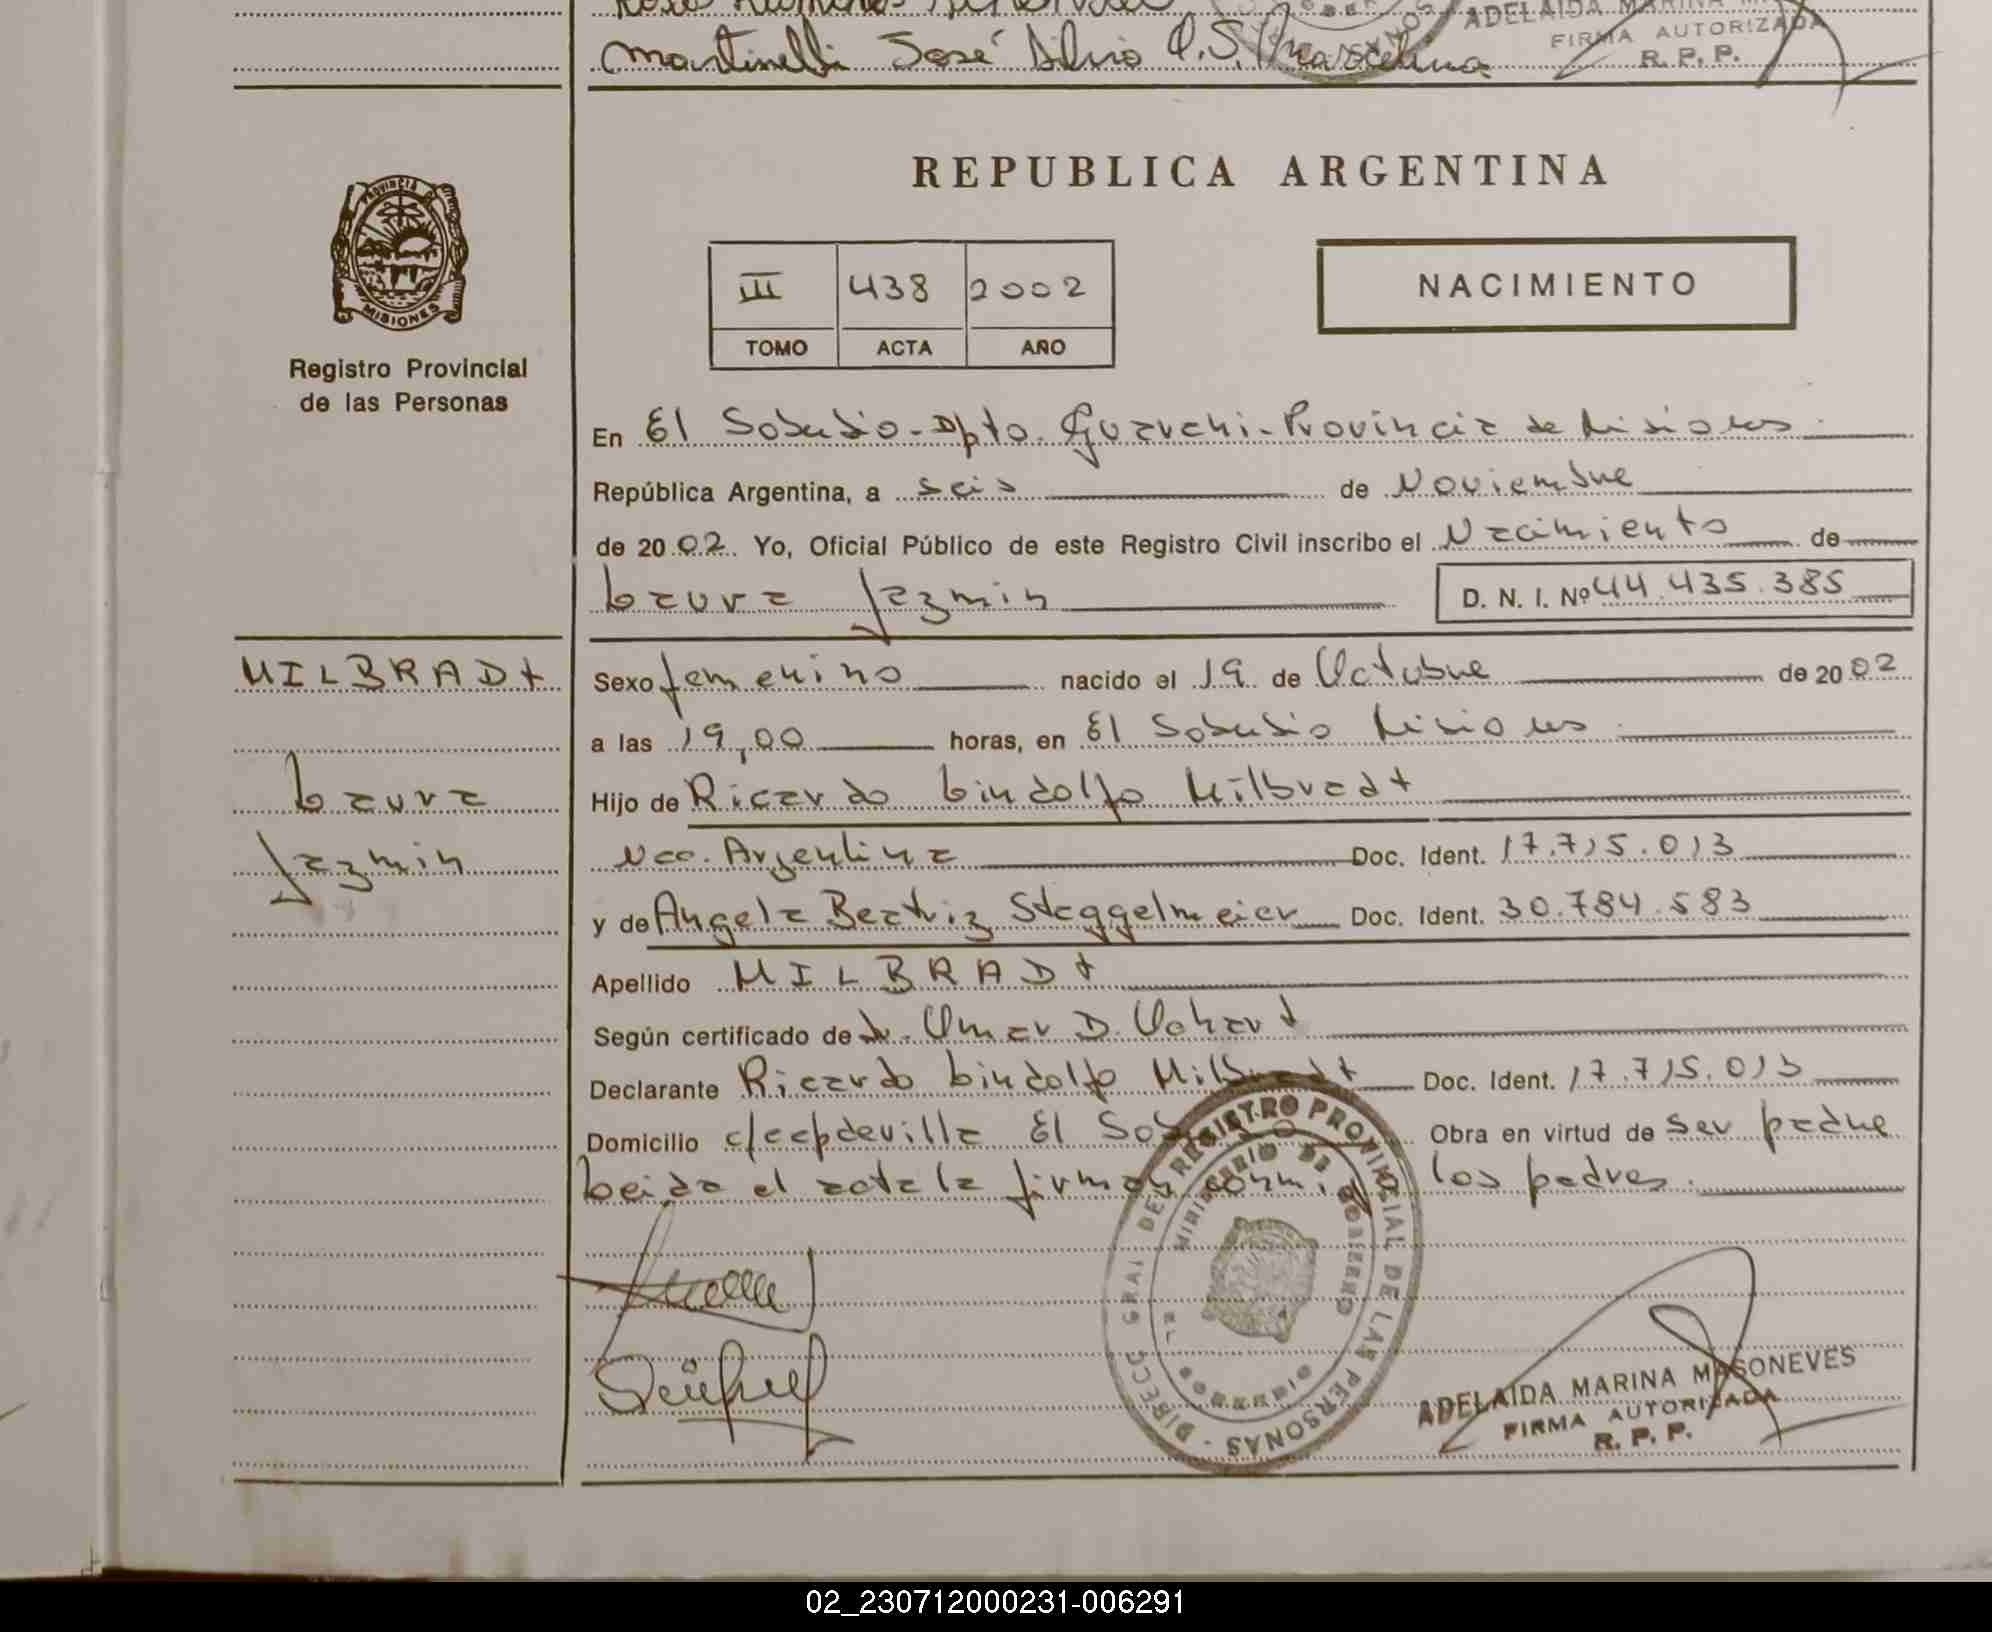 Martinelli José Silvio
ADELAIDA MARINA
FIRMA AUTORIZADA
R. P. P.
REPUBLICA ARGENTINA
PROVINCIA DE
MISIONES
Registro Provincial
de las Personas
III 438 2002
TOMO ACTA AÑO
NACIMIENTO
En El Soberbio - Dpto. Guarani - Provincia de Misiones
República Argentina, a seis de Noviembre
de 2002. Yo, Oficial Público de este Registro Civil inscribo el Nacimiento de
Laura Jazmin D. N. I. Nº 44.435.385
MILBRADt
Laura
Jazmin
Sexo femenino nacido el 19 de Octubre de 2002
a las 19,00 horas, en El Soberbio Misiones
Hijo de Ricardo Lindolfo Milbradt
Nac. Argentina Doc. Ident. 17.715.013
y de Angela Beatriz Steggelmeier Doc. Ident. 30.784.583
Apellido MILBRADt
Según certificado de Dr. Omar D.
Declarante Ricardo Lindolfo Milbradt Doc. Ident. 17.715.013
Domicilio El Sob Obra en virtud de ser padre
Leida el acta la firman conm. los padres.
DIRECC. GRAL DEL REGISTRO PROVINCIAL DE LAS PERSONAS
MINISTERIO DE GOBIERNO
EL SOBERBIO
MISIONES
ADELAIDA MARINA MASONEVES
FIRMA AUTORIZADA
R. P. P.
02_230712000231-006291